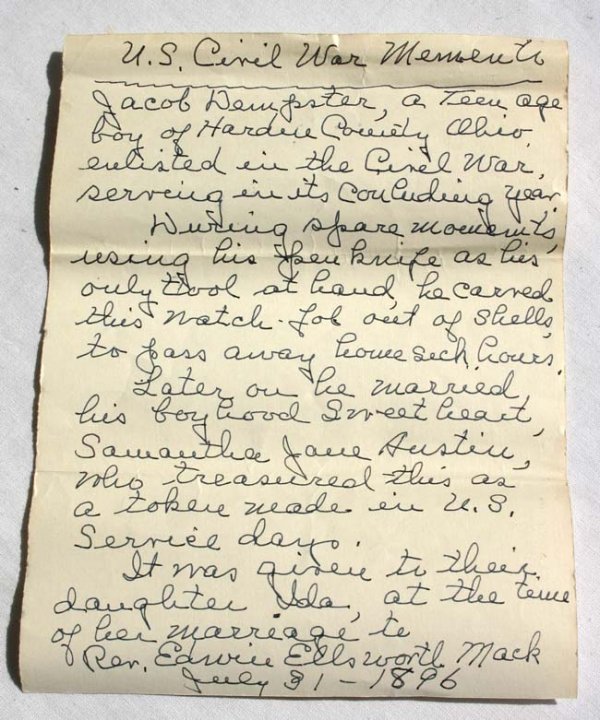 U.S. Civil War Memento
Jacob Dempster, a Teen age
boy of Hardin County Ohio
enlisted in the Civil War,
serving in its concluding year.
During spare moments,
using his pen knife as his
only tool at hand, he carved
this watch-fob out of shells,
to pass away homesick hours.
Later on he married,
his boyhood Sweetheart,
Samantha Jane Austin,
who treasured this as
a token made in U.S.
Service days.
It was given to their
daughter Ida, at the time
of her marriage to
Rev. Edwin Ellsworth Mack
July 31 - 1896